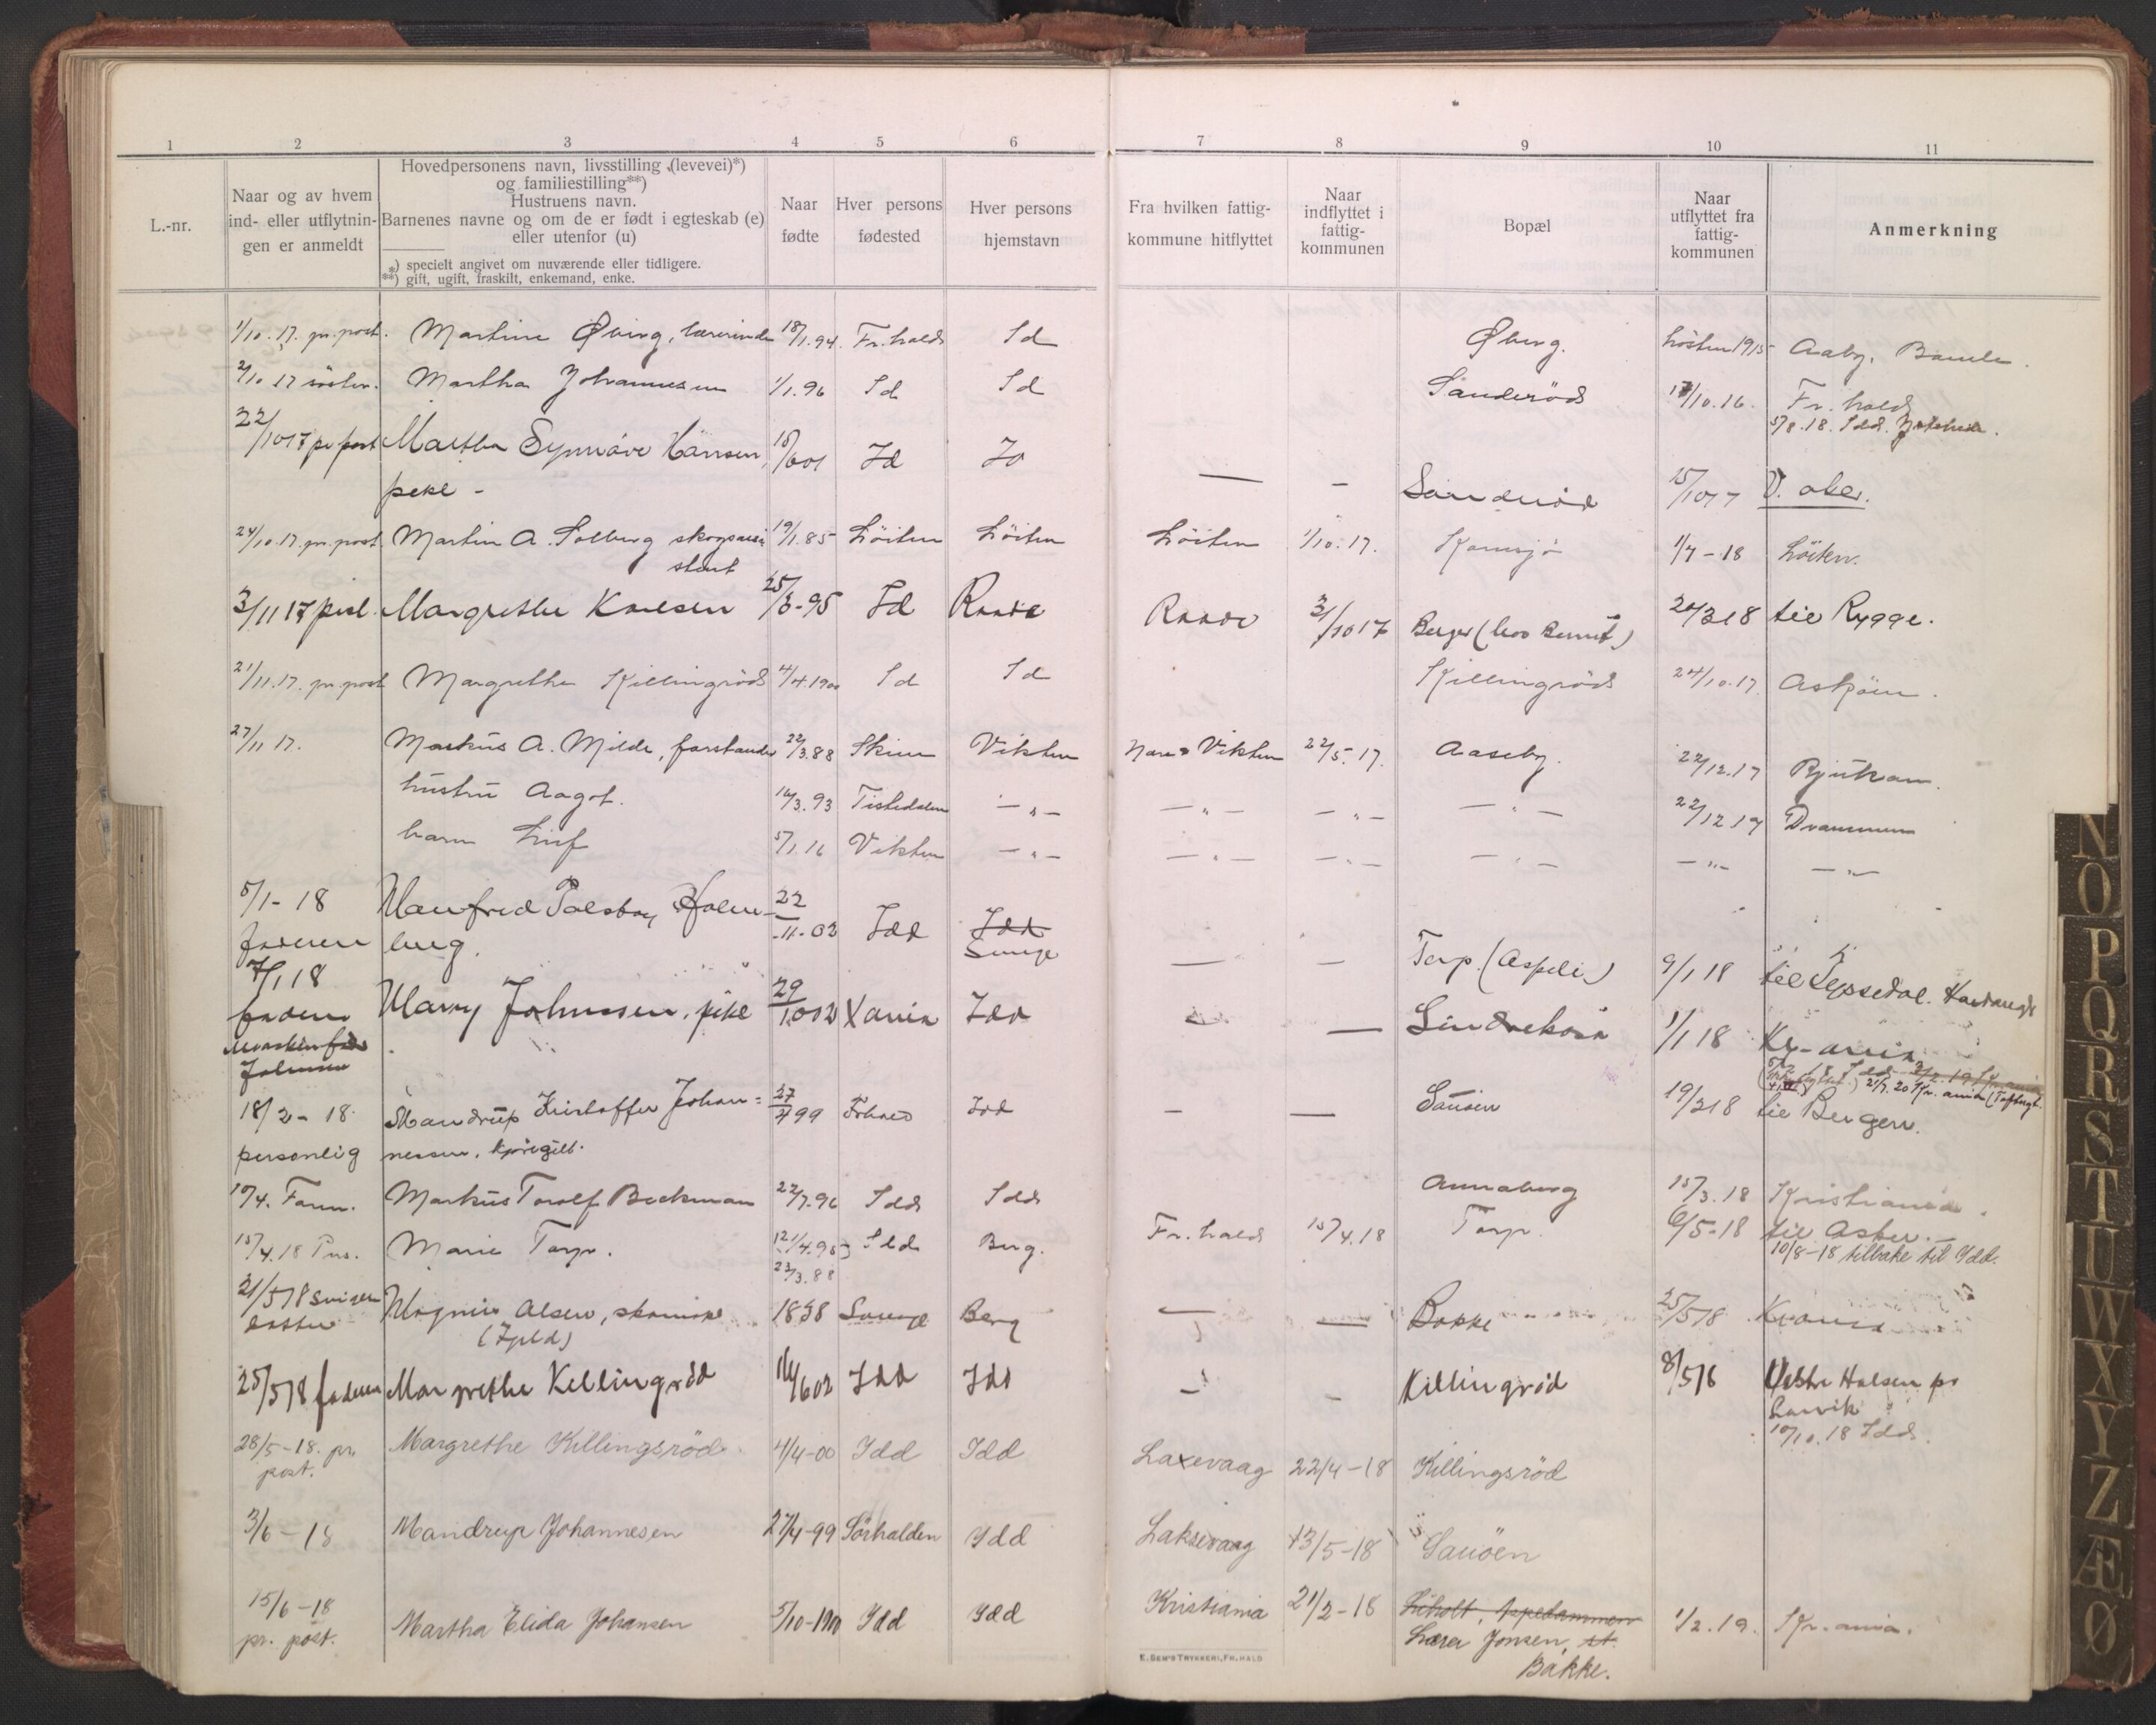 1 2 3 4 5 6 7 8 9 10 11
L.-nr.
Naar og av hvem
ind- eller utflytnin-
gen er anmeldt
Hovedpersonens navn, livsstilling (levevei)*)
og familiestilling**)
Hustruens navn.
Barnenes navne og om de er født i egteskab (e)
eller utenfor (u)
*) specielt angivet om nuværende eller tidligere.
**) gift, ugift, fraskilt, enkemand, enke.
Naar
fødte
Hver persons
fødested
Hver persons
hjemstavn
Fra hvilken fattig-
kommune hitflyttet
Naar
indflyttet i
fattig-
kommunen
Bopæl
Naar
utflyttet fra
fattig-
kommunen
Anmerkning
1/10.17. pr. post. Martine Øberg, lærerinde 18/1.94. Fr.hald Id Øberg. høsten 1915 Aaby, Bamle.
2/10 17 søster. Martha Johannesen 1/1.96 Id Id Sanderöd 17/10.16. Fr. hald
5/8.18. Idd.
22/10 17 pr post Martha Synnöve Hansen, 15/6 01 Id Id — - Sanderöd 15/10 17 V. aker.
pike -
24/10.17. pr. post. Martin A. Solberg skogsassi 19/1.85 Löiten Löiten Löiten 1/10.17. Kornsjö 1/7-18 Löiten.
stent
3/11 17 persl. Margrethe Karlsen 25/3-95 Id Raade Raade 31/10 17 Berger (hos Bernt) 20/3 18 til Rygge.
21/11.17. pr. post Margrethe Killingröd 4/4.1900 Id Id Killingröd 24/10.17. Asköen.
27/11 17. Markus A. Milde, forstander 22/3.88 Skien Vikten Vikten 22/5.17. Aaseby. 22/12.17 Rjukan.
hustru Aagot. 16/3.93 Tistedalen —"— —"— —"— —"— 22/12 17 Drammen
barn Leif 5/1.16 Vikten —"— —"— —"— —"— —"— —"—
5/1-18 Manfred Palsboy Holm- 22/11-02 Idd Idd
faderen berg. Svinge — — Torp. (Aspeli) 9/1 18 til Tyssedal. Hardanger
7/1 18
faderen Marry Johnssen, pike 29/1 002 Xania Idd — Lindrekosa 1/1 18 Kr-ania
Johnsen
21/7.20 Kr. ania
18/2-18. Mandrup Kristoffer Johan= 27/4 99 Frhald Idd — — Sauöen 19/2 18 til Bergen.
personlig nessen,
10/4. Farm. Markus Torolf Beckman 22/7.96 Idd Idd Annaberg 15/3.18 Kristiania.
15/4.18 Prs. Marie Torp. 12/4.95 Idd Berg. Fr. hald 15/4.18 Torp. 6/5-18 til Asker.
23/3.88 10/8-18 tilbake til Idd.
21/5 18 sviger Magnus Olsen, 1838 Svinge Berg — — Bakke 25/5 18 Krania
datter
25/5 18 faderen Margrethe Killingröd 14/6 02 Idd Idd — - Killingröd 8/5 16 Vestre Halsen pr
Larvik
10/10.18 Idd.
28/5-18. pr. Margrethe Killingsröd 4/4-00 Idd Idd Laxevaag 22/4-18 Killingsröd
post.
3/6-18 Mandrup Johannesen 27/4-99 Sörhalden Idd Laksevaag 13/5-18 Sauöen
15/6-18 Martha Elida Johansen 5/10-1900 Idd Idd Kristiania 21/2-18 Liholt, Ippedammen 1/2.19. Kr.ania.
pr. post. Lærer Jonsen, st.
Bakke.
E. SEM'S TRYKKERI, FR.HALD
N
O
P
Q
R
S
T
U
W
X
Y
Z
Æ
Ø